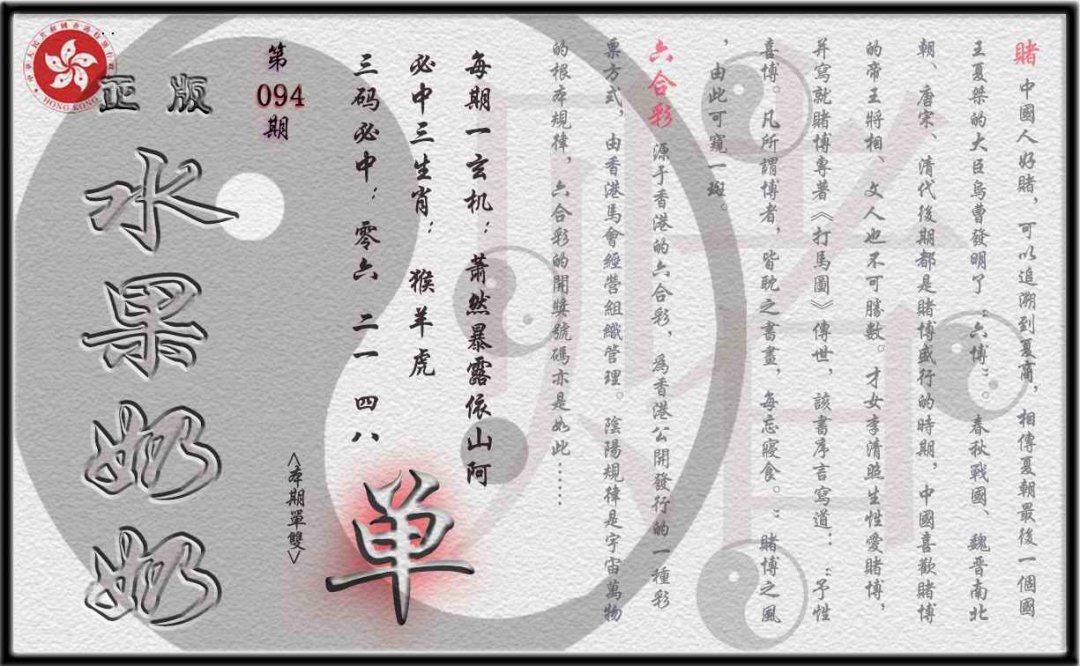 賭 中國人好賭，可以追溯到夏商，相傳夏朝最後一個國
王夏桀的大臣烏曹發明了“六博”。春秋戰國、魏晉南北
朝、唐宋、清代後期都是賭博盛行的時期，中國喜歡賭博
的帝王將相、文人也不可勝數。才女李清照生性愛賭博，
并寫就賭博專著《打馬圖》傳世，該書序言寫道：“予性
喜博。凡所謂博者，皆耽之書畫，每忘寢食。”賭博之風
，由此可窺一斑。
六合彩 源于香港的六合彩，為香港公開發行的一種彩
票方式，由香港馬會經營組織管理。陰陽規律是宇宙萬物
的根本規律，六合彩的開獎號碼亦是如此……
每期一玄机：萧然暴露依山阿
必中三生肖：猴羊虎
三码必中：零六 二一 四八
单
<本期單雙>
第
094
期
HONG KONG
正版
水果奶奶